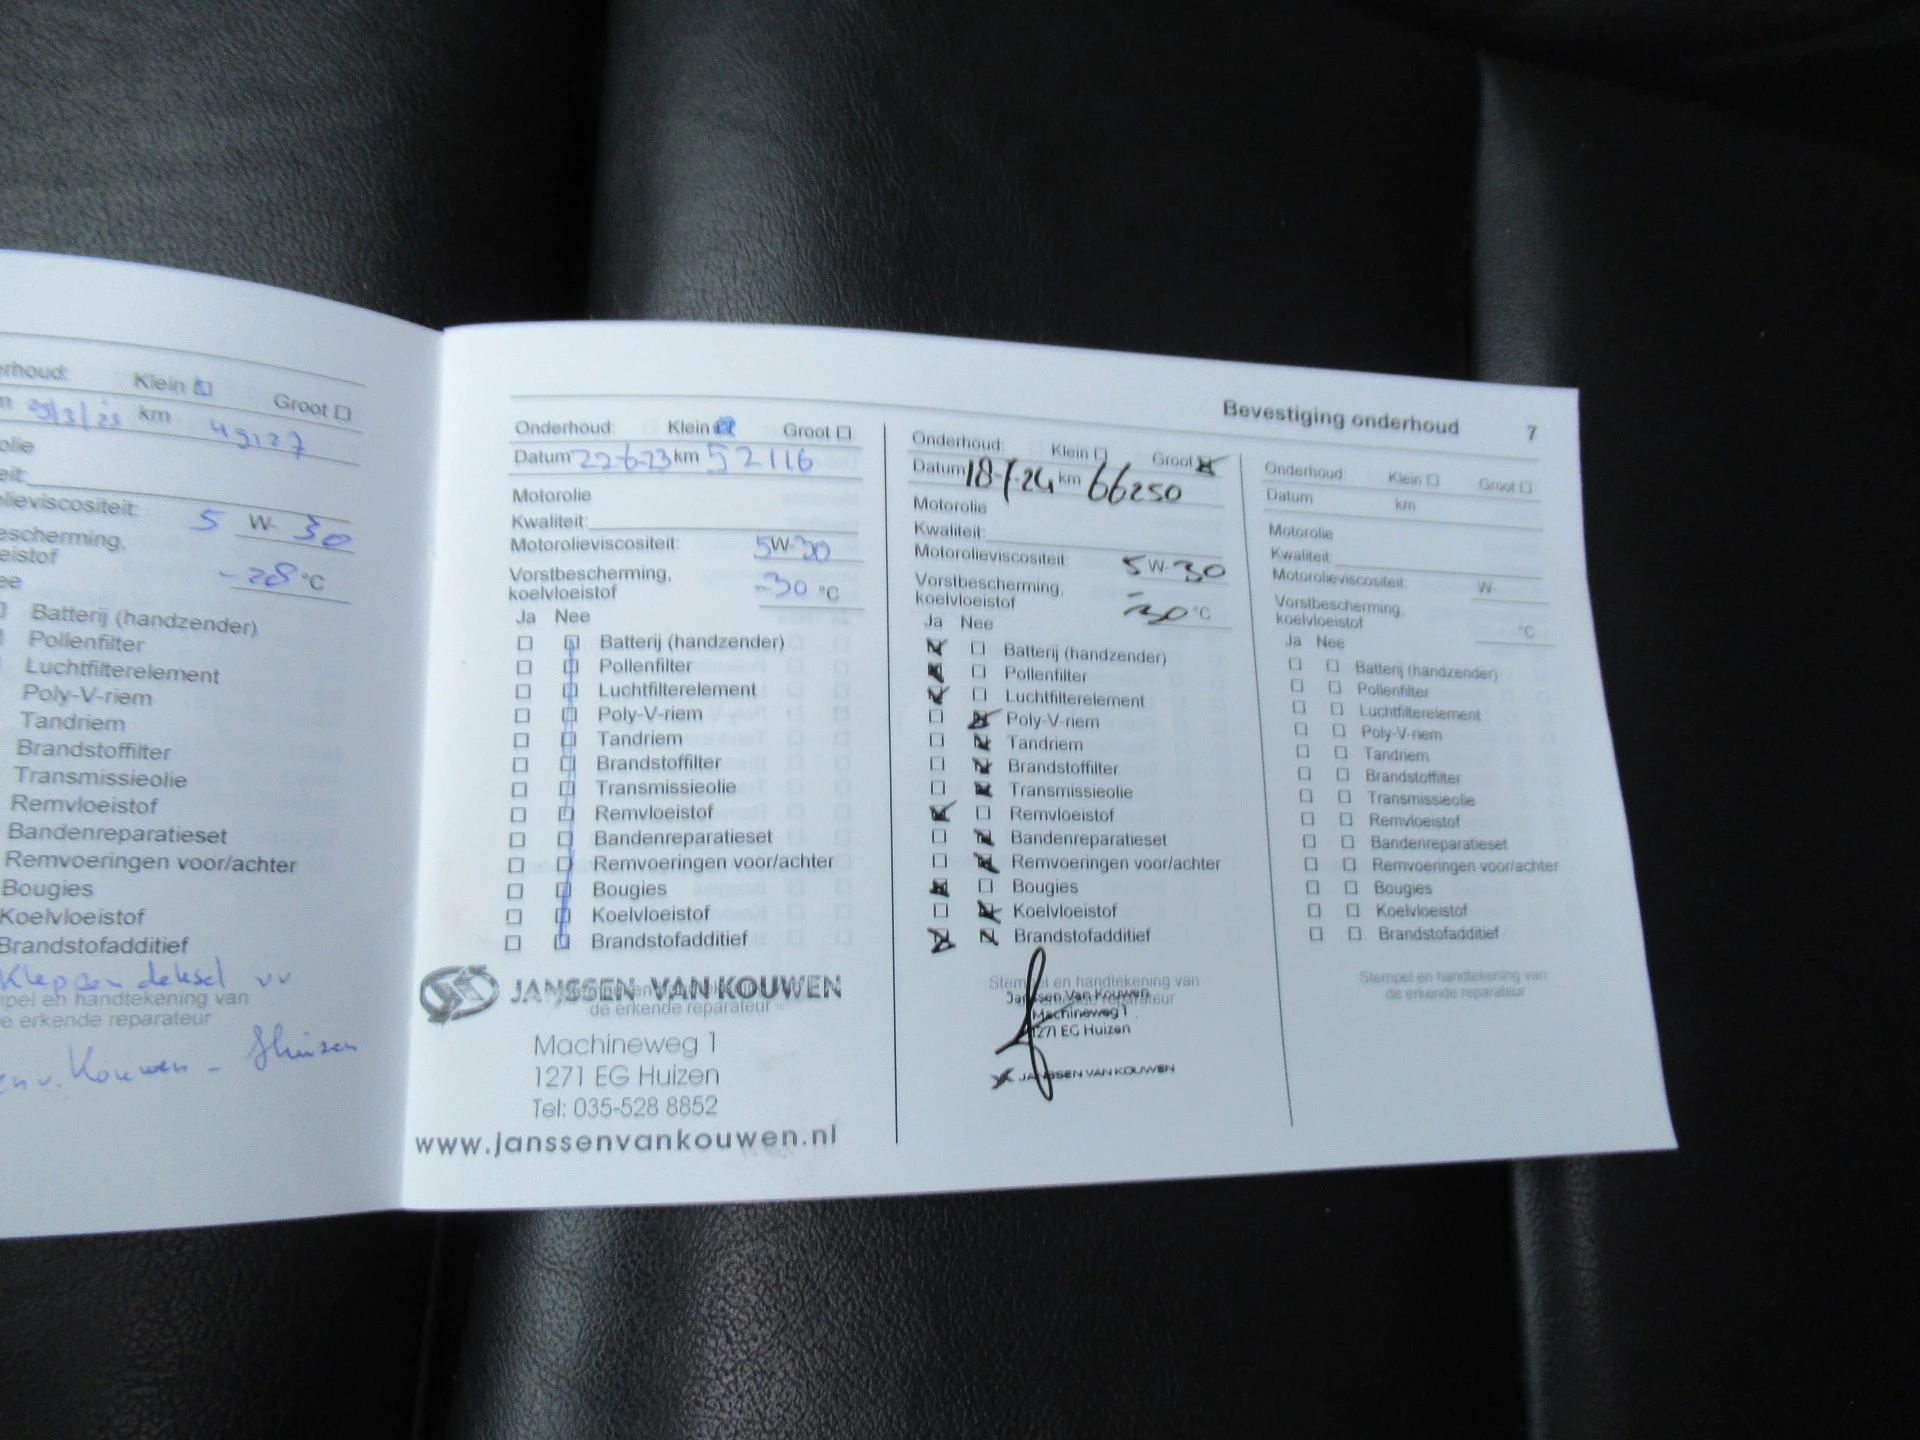 Klein
Groot
km 49127
5 W- 30
-28 °C
Batterij (handzender)
Pollenfilter
Luchtfilterelement
Poly-V-riem
Tandriem
Brandstoffilter
Transmissieolie
Remvloeistof
Bandenreparatieset
Remvoeringen voor/achter
Bougies
Koelvloeistof
Brandstofadditief
Kleppendeksel vv
en handtekening van
erkende reparateur
v. Kouwen - Huizen
Bevestiging onderhoud 7
Onderhoud: Klein Groot
Datum 22-6-23 km 52116
Motorolie
Kwaliteit:
Motorolieviscositeit: 5W-30
Vorstbescherming,
koelvloeistof -30 °C
Ja Nee
Batterij (handzender)
Pollenfilter
Luchtfilterelement
Poly-V-riem
Tandriem
Brandstoffilter
Transmissieolie
Remvloeistof
Bandenreparatieset
Remvoeringen voor/achter
Bougies
Koelvloeistof
Brandstofadditief
JANSSEN VAN KOUWEN
de erkende reparateur
Machineweg 1
1271 EG Huizen
Tel: 035-528 8852
www.janssenvankouwen.nl
Onderhoud: Klein Groot
Datum 18-7-24 km 66250
Motorolie
Kwaliteit:
Motorolieviscositeit: 5 W- 30
Vorstbescherming,
koelvloeistof -30 °C
Ja Nee
Batterij (handzender)
Pollenfilter
Luchtfilterelement
Poly-V-riem
Tandriem
Brandstoffilter
Transmissieolie
Remvloeistof
Bandenreparatieset
Remvoeringen voor/achter
Bougies
Koelvloeistof
Brandstofadditief
Stempel en handtekening van
Janssen Van Kouwen
Machineweg 1
1271 EG Huizen
JANSSEN VAN KOUWEN
Onderhoud: Klein Groot
Datum km
Motorolie
Kwaliteit:
Motorolieviscositeit: W-
Vorstbescherming,
koelvloeistof °C
Ja Nee
Batterij (handzender)
Pollenfilter
Luchtfilterelement
Poly-V-riem
Tandriem
Brandstoffilter
Transmissieolie
Remvloeistof
Bandenreparatieset
Remvoeringen voor/achter
Bougies
Koelvloeistof
Brandstofadditief
Stempel en handtekening van
de erkende reparateur